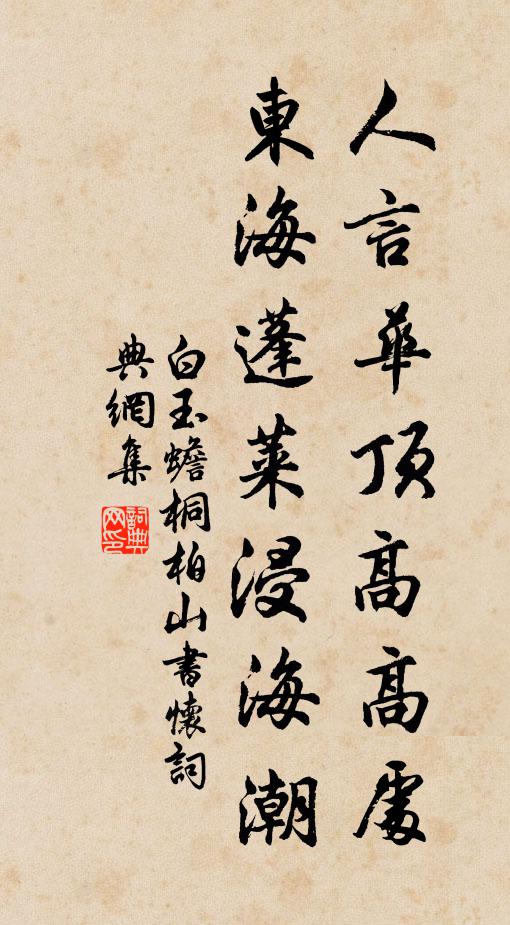 人言華頂高高處
東海蓬萊浸海潮
白玉蟾桐柏山書懷詞
典網集
詞典網印